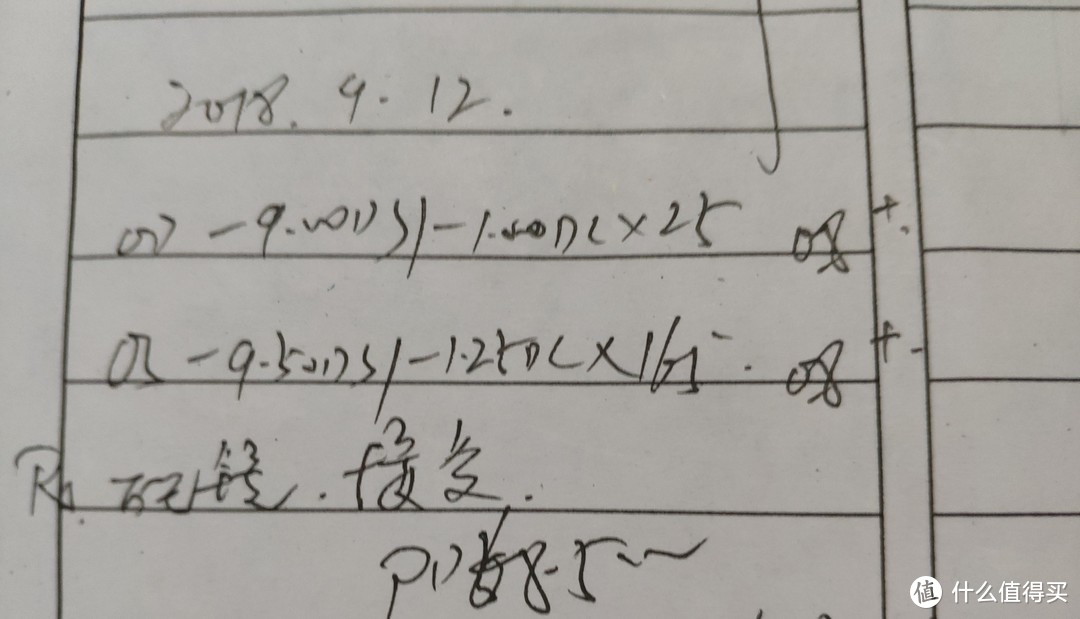 2018.9.12.
OD -9.00DS/-1.50DC×25 0.8 +.
OS -9.50DS/-1.25DC×165. 0.8 +.
Rx 配镜.接受.
PD 68.5mm
值 什么值得买